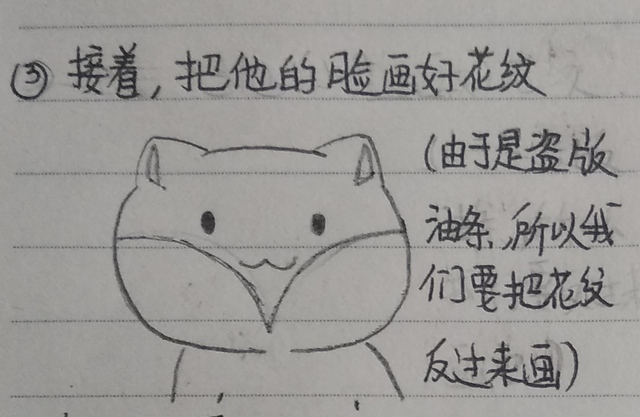 ③接着,把他的脸画好花纹
(由于是盗版
油条,所以我
们要把花纹
反过来画)